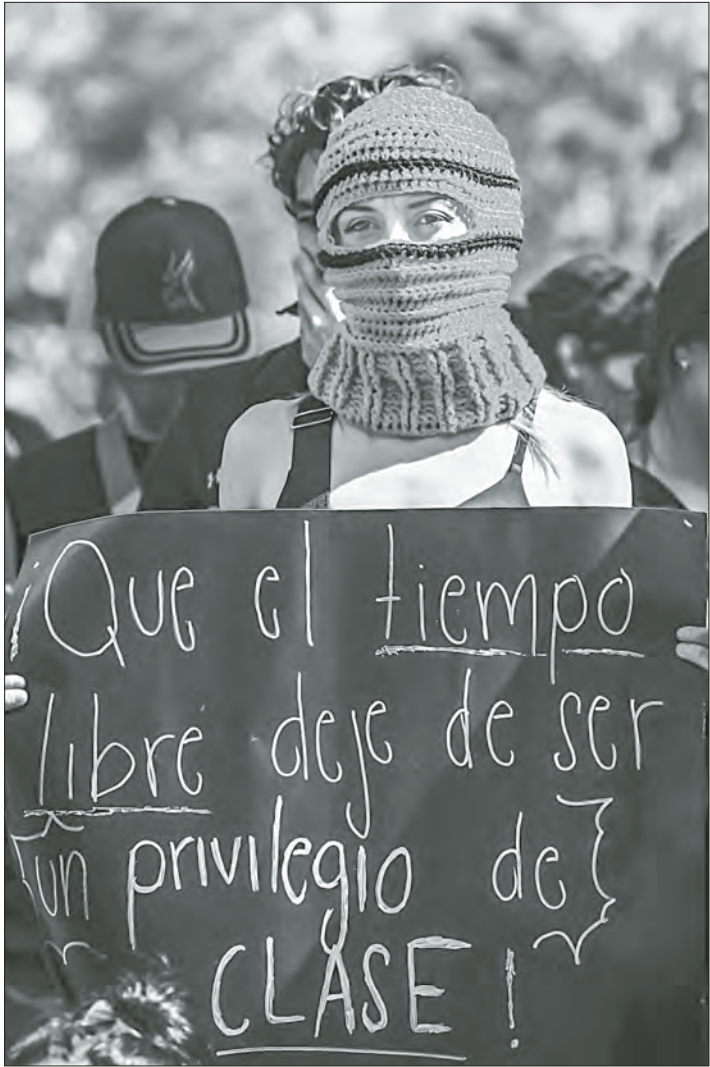 ¡Que el tiempo
libre deje de ser
un privilegio de
CLASE!